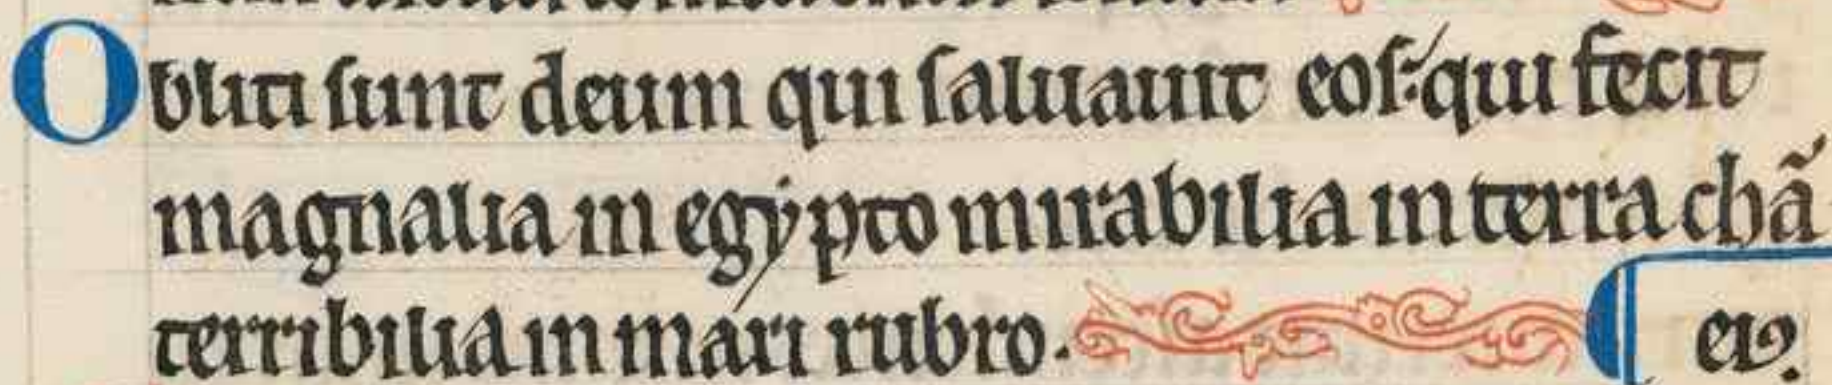 Obliti sunt deum qui saluauit eos: qui fecit
magnalia in egypto mirabilia in terra chã
terribilia in mari rubro. eiꝰ.